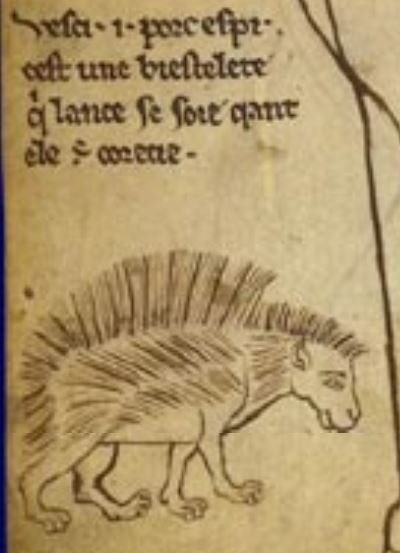 Vesci · i · porc espi ·
cest une biestelete
q̇ lance se soie qant
ele ẽ corecie ·